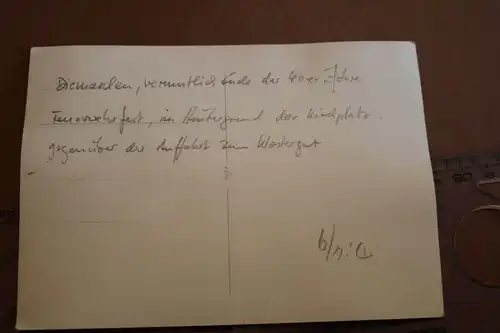 Diemarden, vermutlich Ende der 40er Jahre
Feuerwehrfest, im Hintergrund der
gegenüber der Auffahrt zum Klostergut